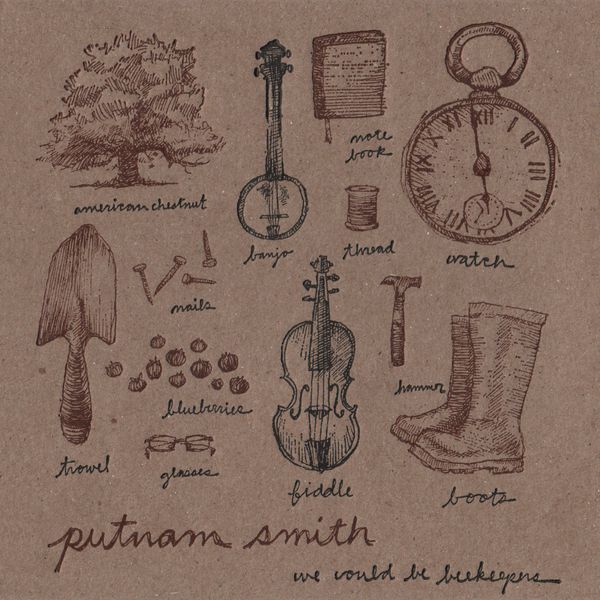 note
book
american chestnut
banjo
thread
watch
nails
hammer
blueberries
trowel
glasses
fiddle
boots
putnam smith
we could be beekeepers